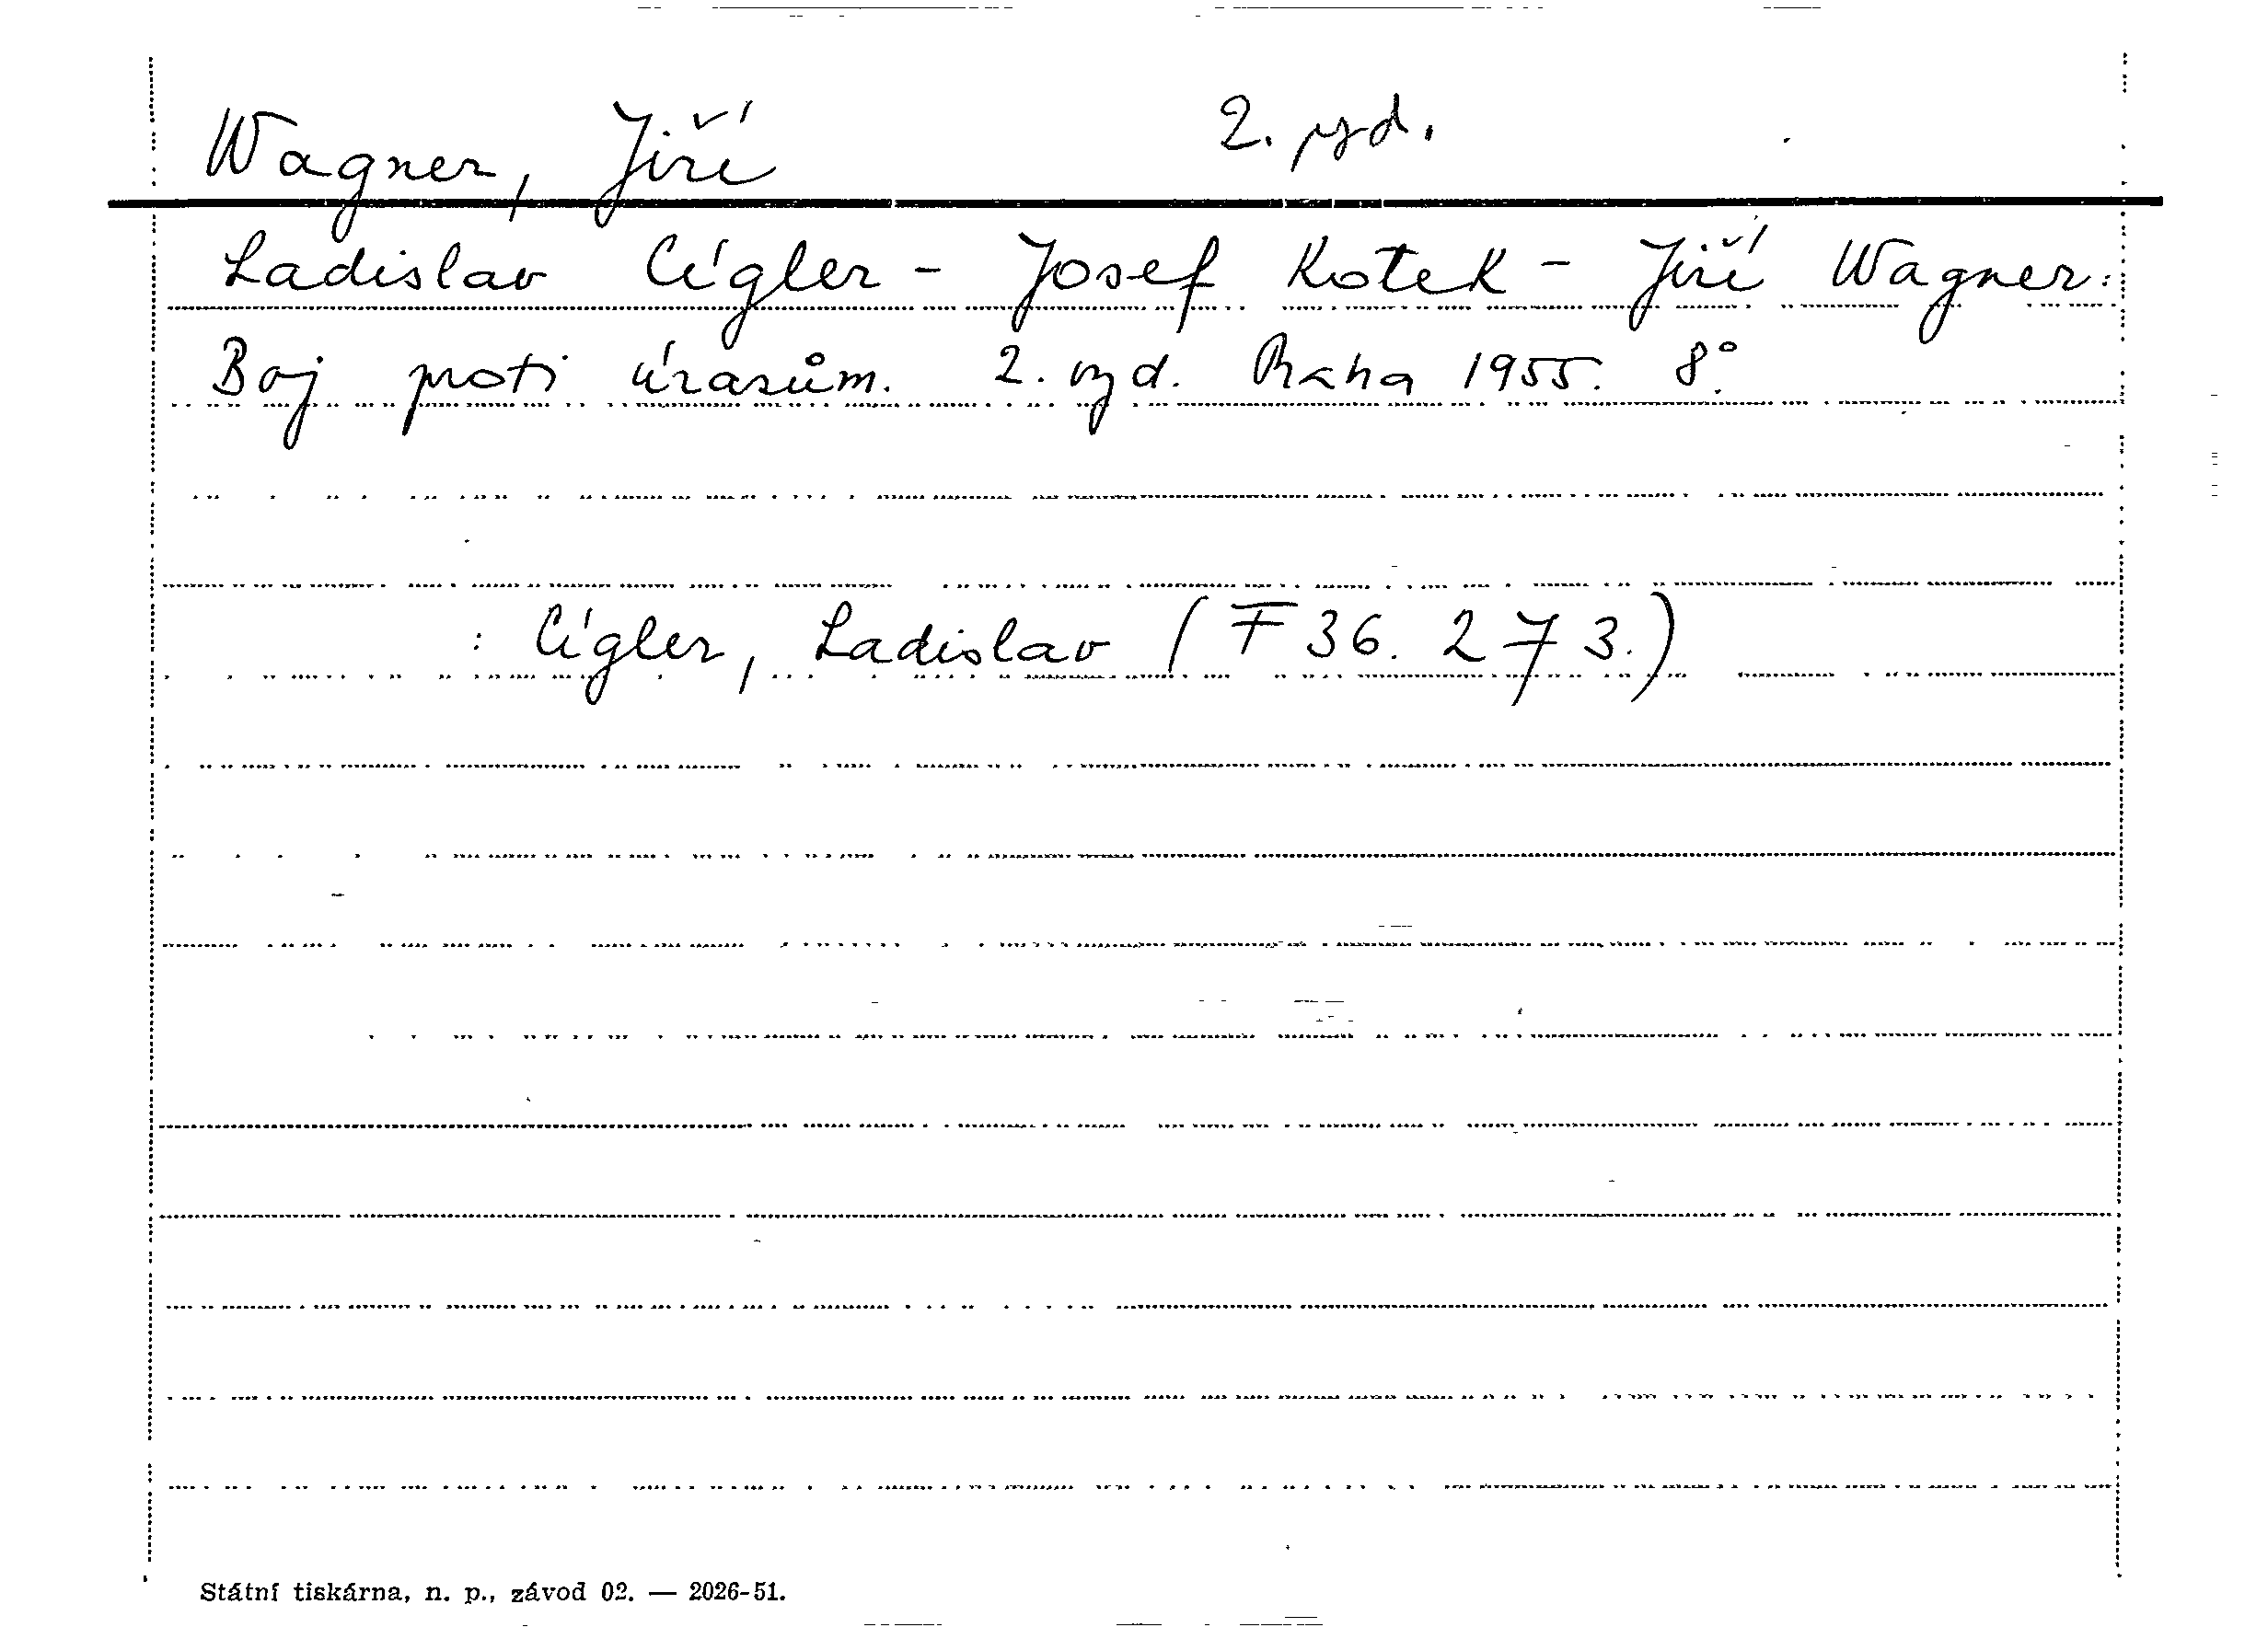 Wagner, Jiří 2. vyd.
Ladislav Cígler - Josef Kotek - Jiří Wagner:
Boj proti úrazům. 2. vyd. Praha 1955. 8°.
: Cígler, Ladislav (F 36.273.)
Státní tiskárna, n. p., závod 02. — 2026-51.